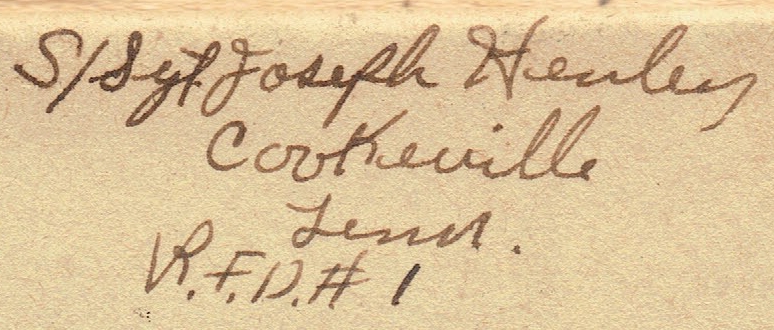 S/Sgt Joseph Henley
Cookeville
Tenn.
R.F.D. # 1